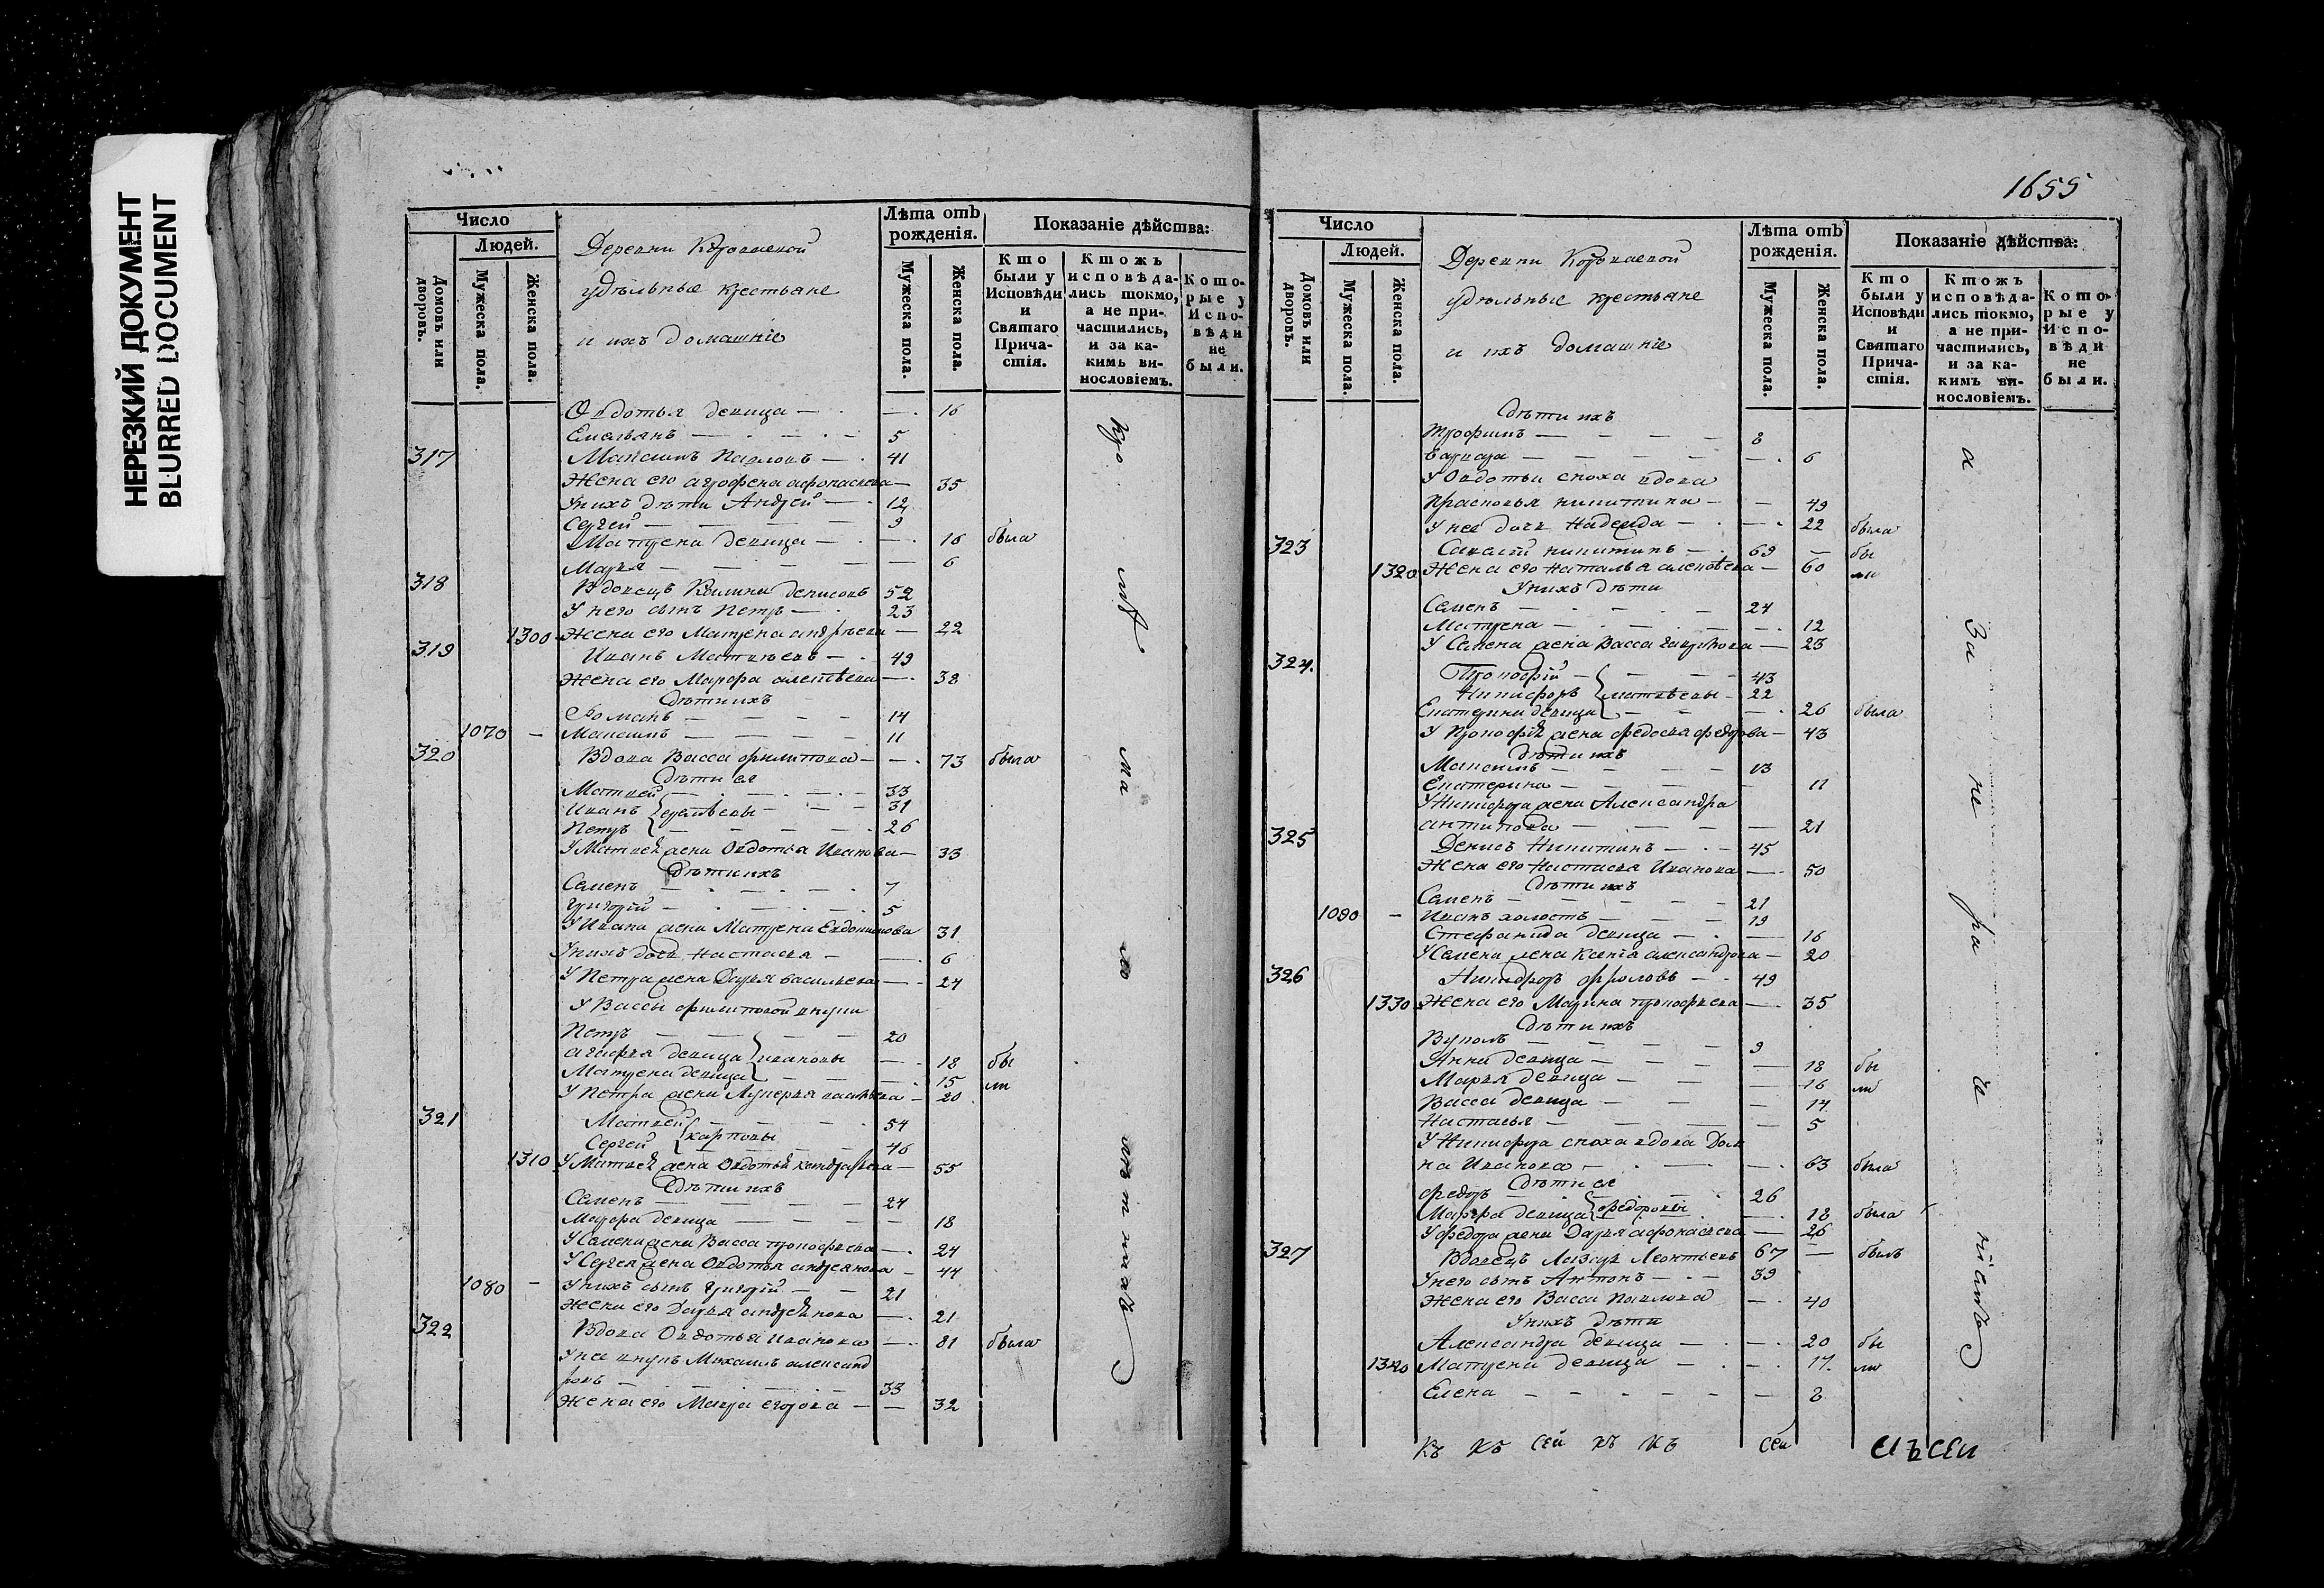 НЕРЕЗКИЙ ДОКУМЕНТ
BLURRED DOCUMENT
Число
Людей.
Домовъ или дворовъ.
Мужеска пола.
Женска пола.
Деревни
удѣльные крестьяне
и ихъ домашніе
Лѣта отъ рожденія.
Мужеска пола.
Женска пола.
Показаніе дѣйства:
Кто были у Исповѣди и Святаго Причастія.
Ктожъ исповѣдались токмо, а не причастились, и за какимъ винословіемъ.
Которые у Исповѣди не были.
Овдотья девица — — 16
Емельянъ — 5
317 Максимъ Павловъ — 41
Жена его Агрофена Афонасьева — 35
У нихъ дѣти Андрей — 12
Сергей — 9
Матрена девица — 16 была
Марья — 6
318 Вдовецъ Денисовъ 52
У него сынъ Петръ — 23
1300 Жена его Матрена Андрѣева — 22
319 Иванъ Матвѣевъ — 49
Жена его Марфа — 38
Дѣти ихъ
Романъ — 14
1070 — Максимъ — 11
320 Вдова Васса Филипова — 73 была
Дѣти ея
Матвей — 33
Иванъ — 31
Петръ — 26
У Матвея жена Овдотья Иванова — 33
Дѣти ихъ
Семенъ — 7
Григорій — 5
У Ивана жена Матрена Евдокимова 31
У нихъ дочь Настасья — 6
У Петра жена Дарья Васильева — 24
У Вассы Филиповой внуки
Петръ — 20
Агафья девица } Ивановы — 18 бы
Матрена девица — 15 ли
У Петра жена Лукерья — 20
321 Матвей } Карповы — 54
Сергей — 46
1310 У Матвея жена Овдотья Кондратьева — 55
Дѣти ихъ
Семенъ — 24
Марфа девица — 18
У Семена жена Васса Прокофьева — 24
У Сергея жена Овдотья Андреянова — 44
1080 — У нихъ сынъ Григорій — 21
Жена его Дарья — 21
322 Вдова Овдотья Иванова — 81 была
У нея внукъ Михаилъ Александ
ровъ — 33
Жена его Мавра Егорова — 32
кро мѣ ма ло лѣтнихъ
1655
Число
Людей.
Домовъ или дворовъ.
Мужеска пола.
Женска пола.
Деревни
удѣльные крестьяне
и ихъ домашніе
Лѣта отъ рожденія.
Мужеска пола.
Женска пола.
Показаніе дѣйства:
Кто были у Исповѣди и Святаго Причастія.
Ктожъ исповѣдались токмо, а не причастились, и за какимъ винословіемъ.
Которые у Исповѣди не были.
Дѣти ихъ
Трофимъ — 8
Варвара — 6
У Овдотьи сноха вдова
Прасковья Никитина — 49
У нее дочь Надежда — 22 была
323 Савелій Никитинъ — 69 — бы
1320 Жена его Наталья — 60 ли
У нихъ дѣти
Семенъ — 24
Матрена — 12
У Семена жена Васса — 23
324. Прокофій — 43
Никифоръ } Матвѣевы — 22
Екатерина девица — 26 была
У Прокофья жена Федосья Федорова — 43
Дѣти ихъ
Максимъ — 13
Екатерина — 11
У Никифора жена Александра
Антипова — 21
325 Денисъ Никитинъ — 45
Жена его Настасья Иванова — 50
Дѣти ихъ
Семенъ — 21
1090 — Иванъ холостъ — 19
Стефанида девица — 16
У Семена жена Ксенія Александрова — 20
326 Никифоръ Фроловъ — 49
1330 Жена его Марина Прокофьева — 35
Дѣти ихъ
Вуколъ — 9
Анна девица — 18 бы
Марья девица — 16 ли
Васса девица — 14
Настасья — 5
У Никифора сноха вдова Дом
на Иванова — 63 была
Дѣти ее
Федоръ — 26
Марфа девица } Федоровы — 18 была
У Федора жена Дарья Афонасьева — 26
327 Вдовецъ Леонтьевъ 67 — былъ
У него сынъ Антонъ — 39
Жена его Васса Павлова — 40
У нихъ дѣти
Александра девица — 20 бы
1340 Матрена девица — 17 ли
Елена — 8
а за не ра
Къ сей къ
сей